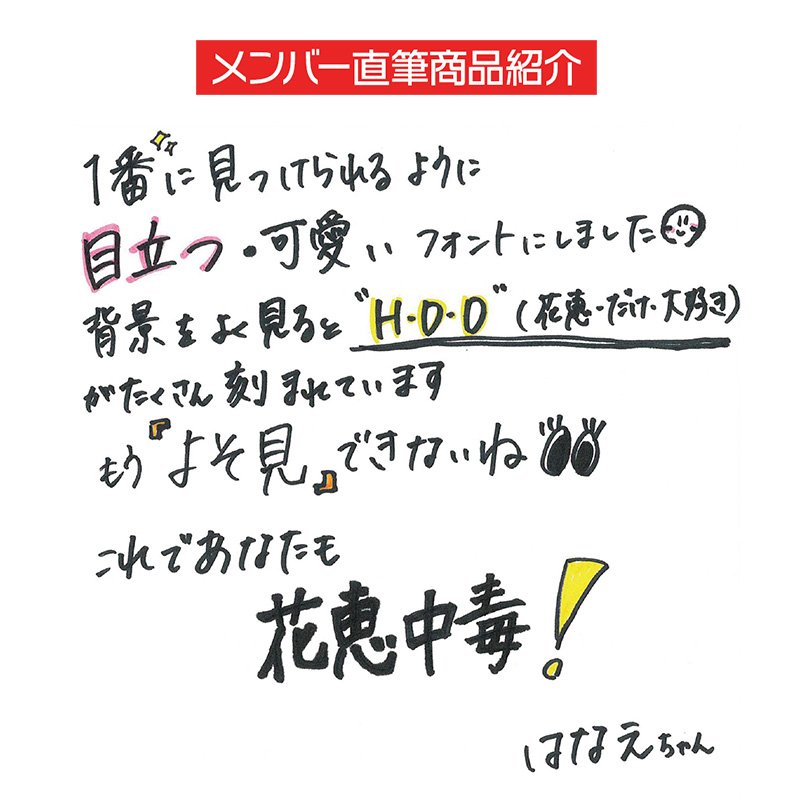 メンバー直筆商品紹介
1番に見つけられるように
目立つ・可愛いフォントにしました
背景をよく見ると"H・D・D"(花恵・だけ・大好き)
がたくさん刻まれています
もう『よそ見』できないね
これであなたも
花恵中毒!
はなえちゃん